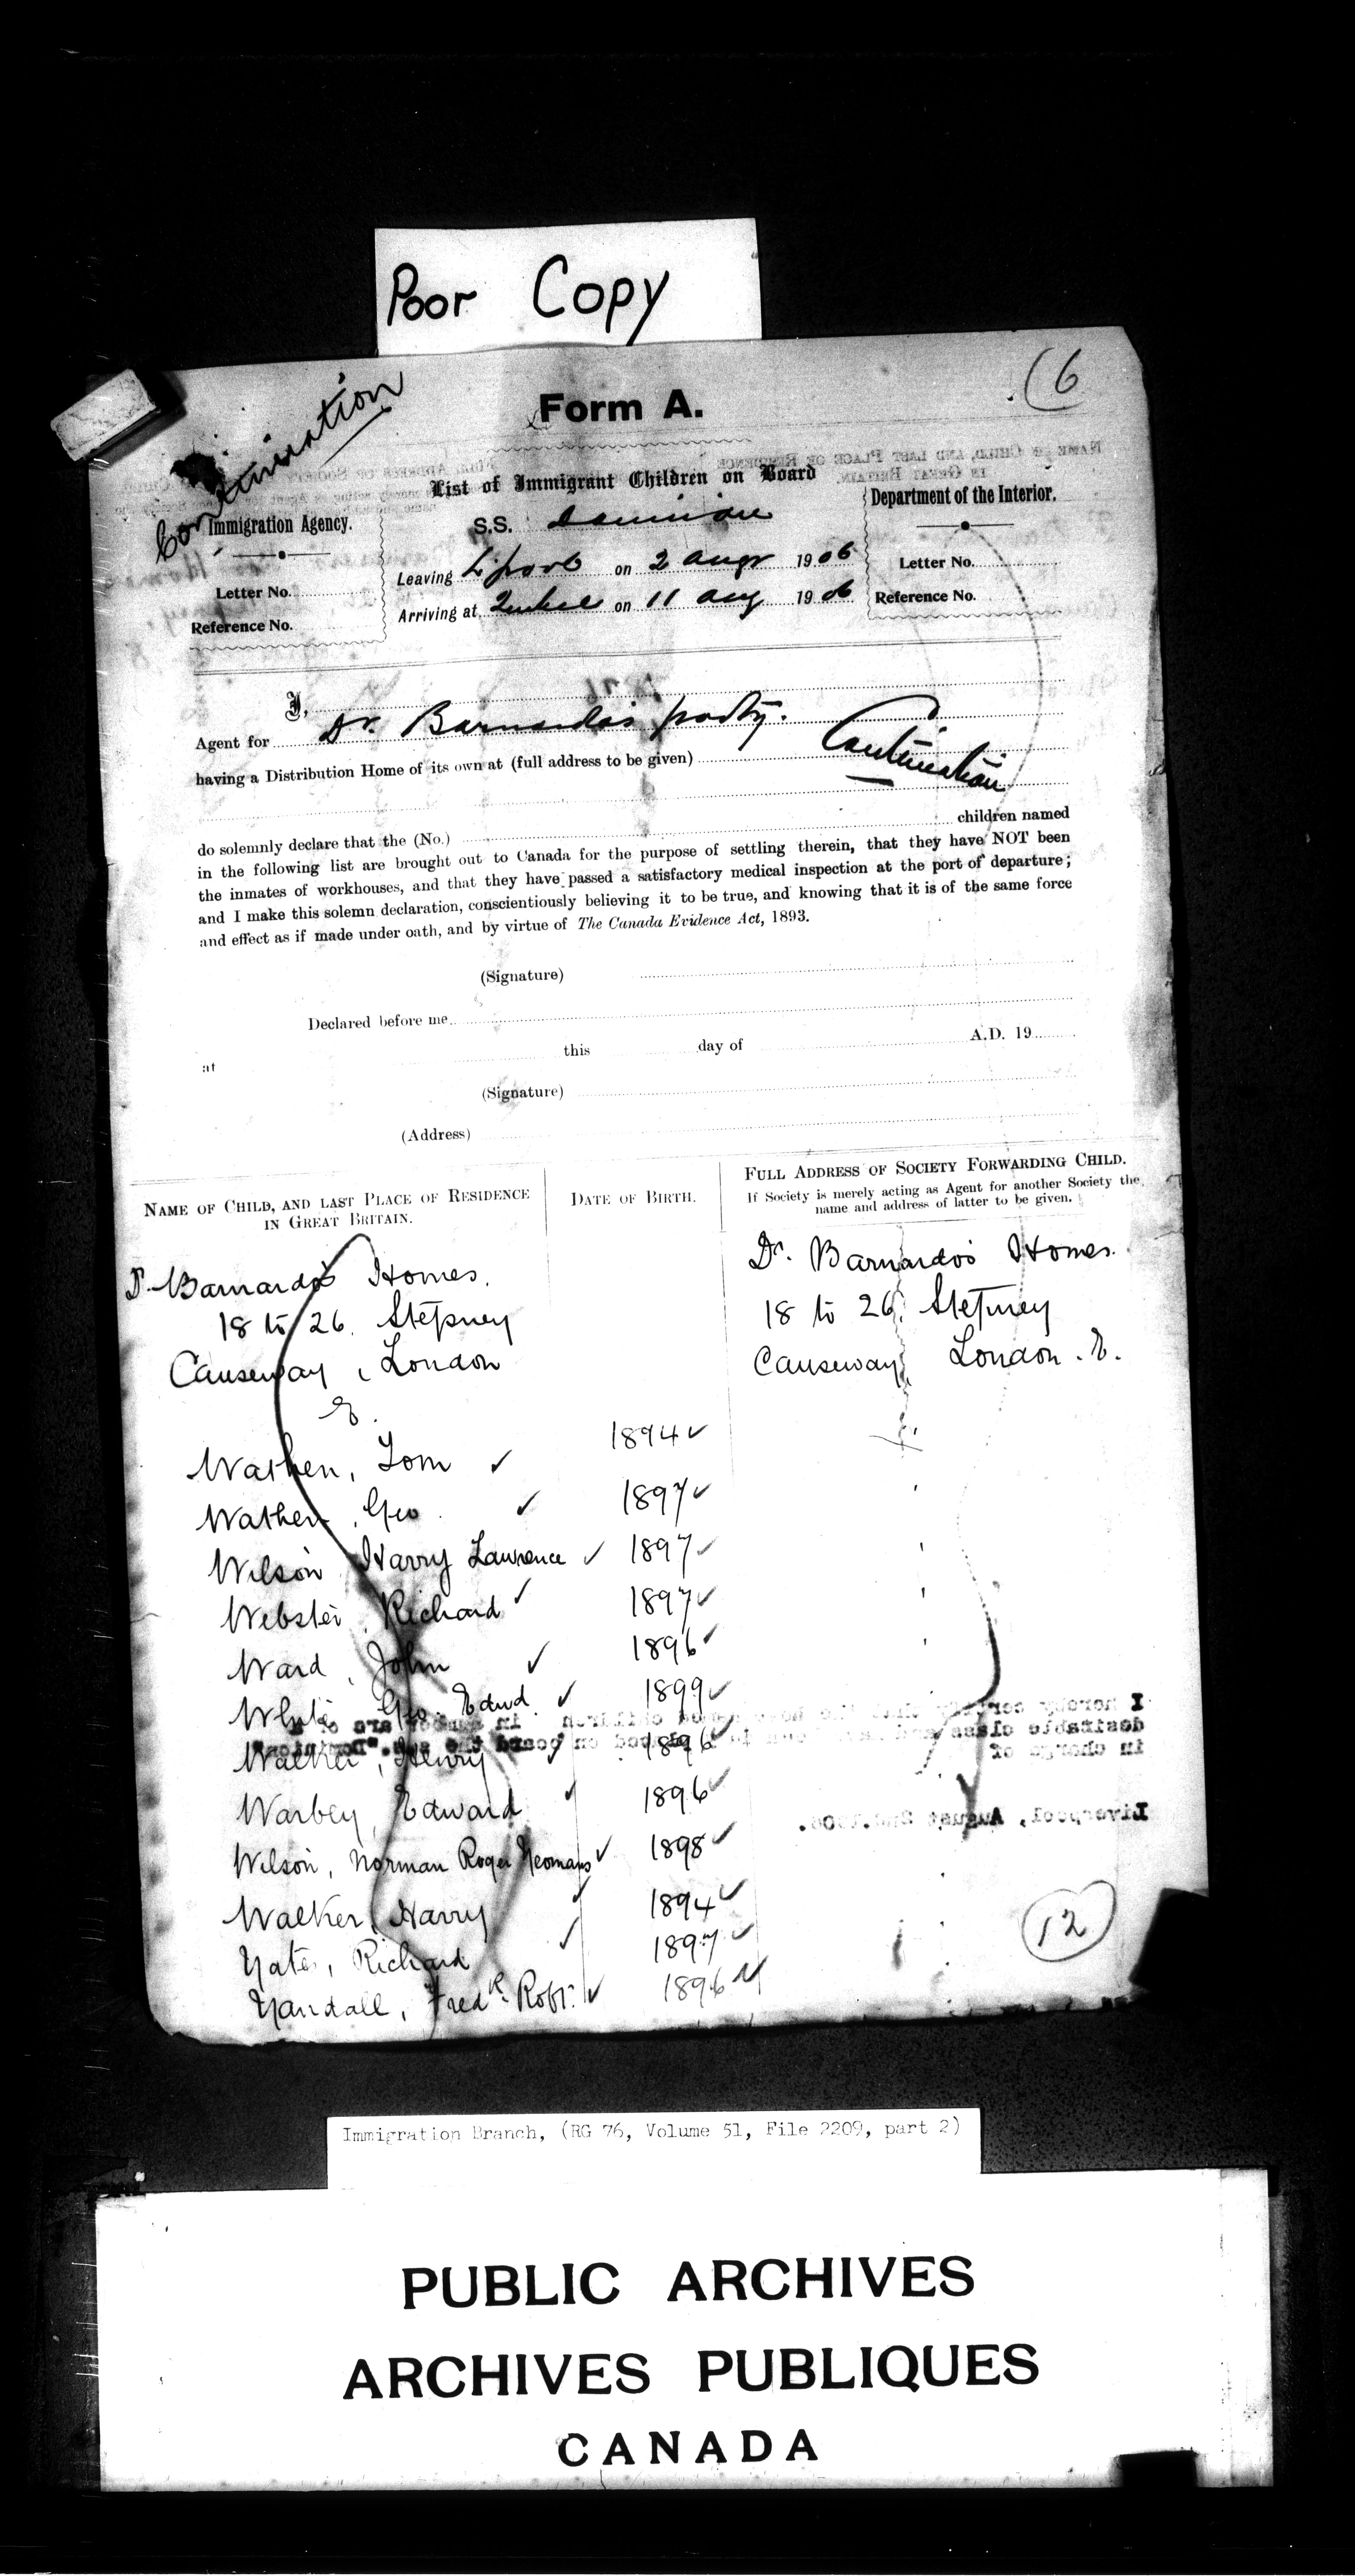 Poor Copy
Continuation
(6
Form A.
List of Immigrant Children on Board
Immigration Agency.
Letter No.
Reference No.
S.S. Dominion
Leaving L'pool on 2 Augt 1906
Arriving at Quebec on 11 Aug 1906
Department of the Interior.
Letter No.
Reference No.
I,
Agent for Dr. Barnardo's party.
having a Distribution Home of its own at (full address to be given) Continuation
do solemnly declare that the (No.) children named
in the following list are brought out to Canada for the purpose of settling therein, that they have NOT been
the inmates of workhouses, and that they have passed a satisfactory medical inspection at the port of departure;
and I make this solemn declaration, conscientiously believing it to be true, and knowing that it is of the same force
and effect as if made under oath, and by virtue of The Canada Evidence Act, 1893.
(Signature)
Declared before me
at this day of A.D. 19
(Signature)
(Address)
NAME OF CHILD, AND LAST PLACE OF RESIDENCE
IN GREAT BRITAIN.
DATE OF BIRTH.
FULL ADDRESS OF SOCIETY FORWARDING CHILD.
If Society is merely acting as Agent for another Society the
name and address of latter to be given.
Dr. Barnardo's Homes.
18 to 26. Stepney
Causeway, London
E.
Dr. Barnardo's Homes.
18 to 26. Stepney
Causeway, London. E.
Wathen, Tom ✓ 1894 ✓
Wathen, Geo ✓ 1897 ✓
Wilson Harry Lawrence ✓ 1897 ✓
Webster, Richard ✓ 1897 ✓
Ward, John ✓ 1896 ✓
White, Geo. Edwd. ✓ 1899 ✓
Walker, Henry ✓ 1896 ✓
Warbey, Edward ✓ 1896 ✓
Wilson, Norman Roger Yeomans ✓ 1898 ✓
Walker, Harry ✓ 1894 ✓
Yates, Richard ✓ 1897 ✓
Yandall, Fredk. Robt. ✓ 1896 ✓
12
Immigration Branch, (RG 76, Volume 51, File 2209, part 2)
PUBLIC ARCHIVES
ARCHIVES PUBLIQUES
CANADA